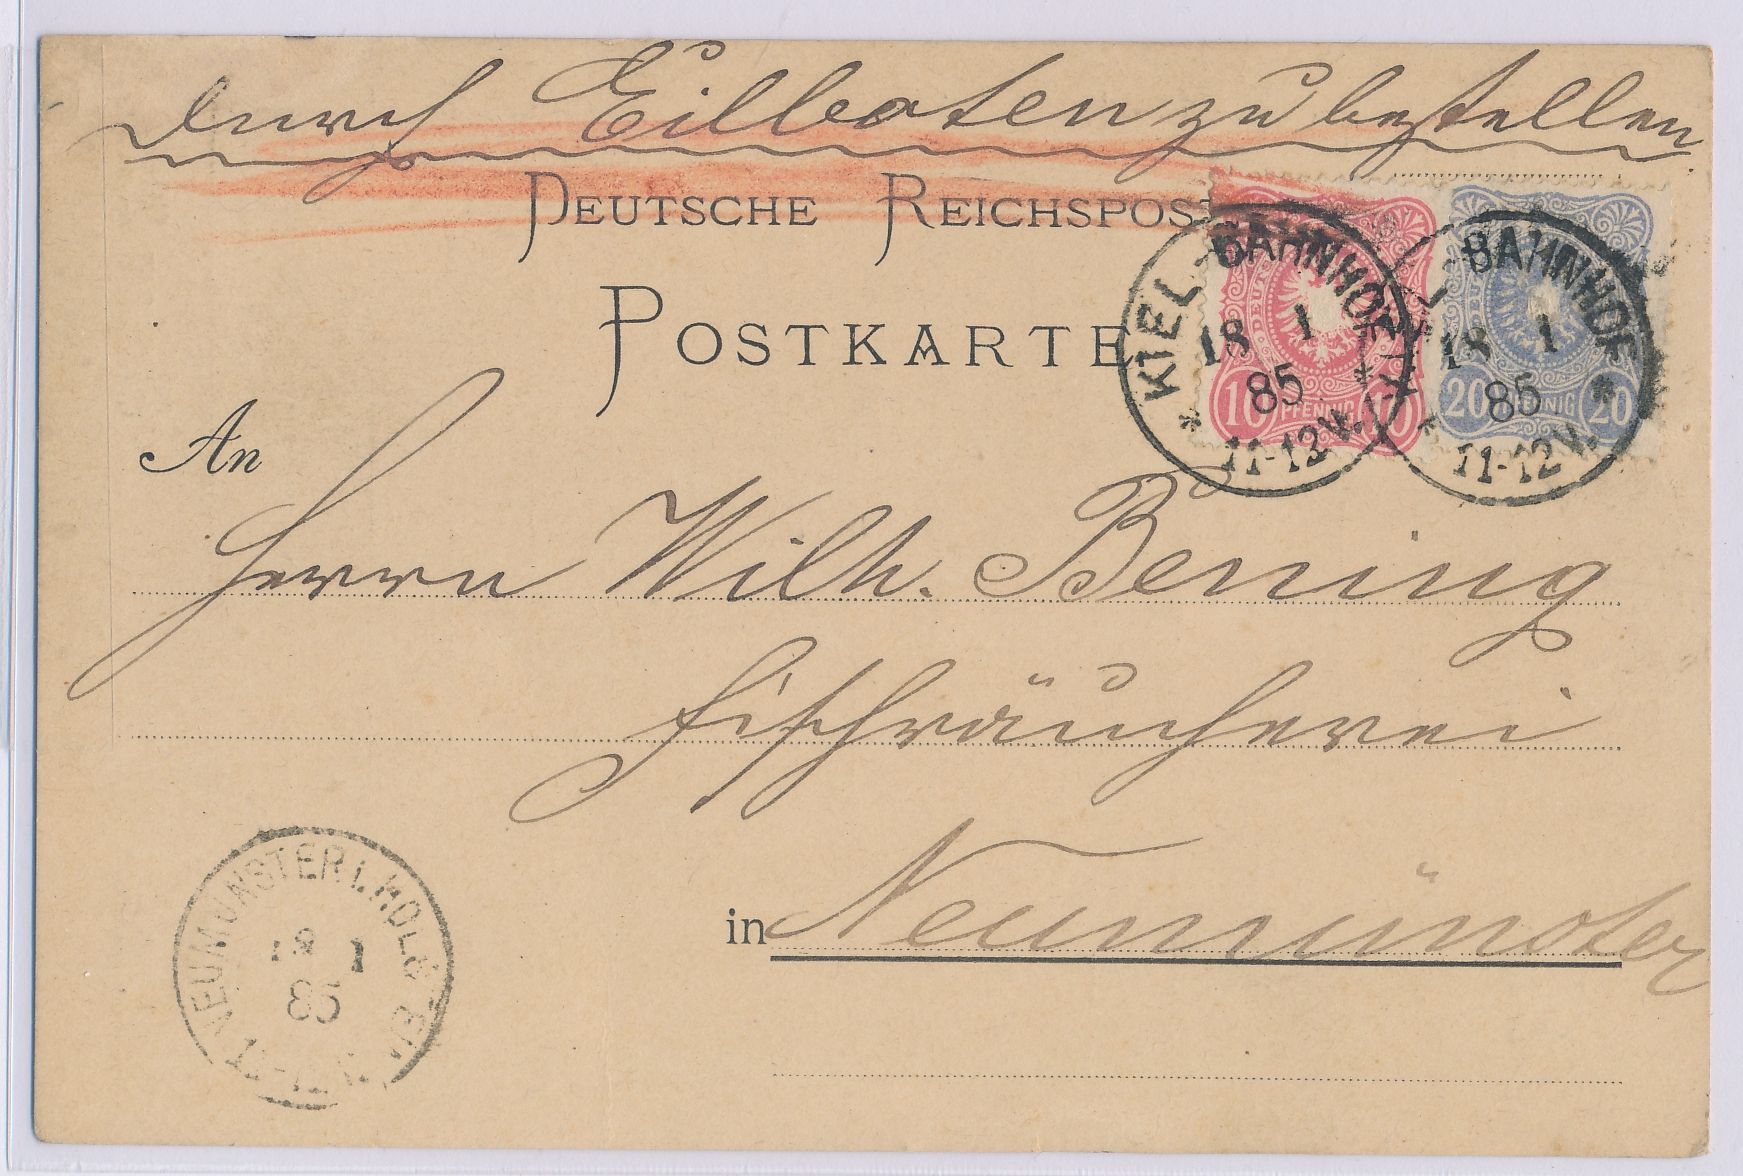 durch Eilboten zu bestellen
DEUTSCHE REICHSPOST
POSTKARTE
KIEL-BAHNHOF
18 1
85
* 11-12V. *
KIEL-BAHNHOF
18 1
85
* 11-12V. *
10 PFENNIG 10
20 PFENNIG 20
An
Herrn Wilh. Bening
Fischräucherei
in Neumünster
NEUMÜNSTER I. HOLSTEIN
18 1
85